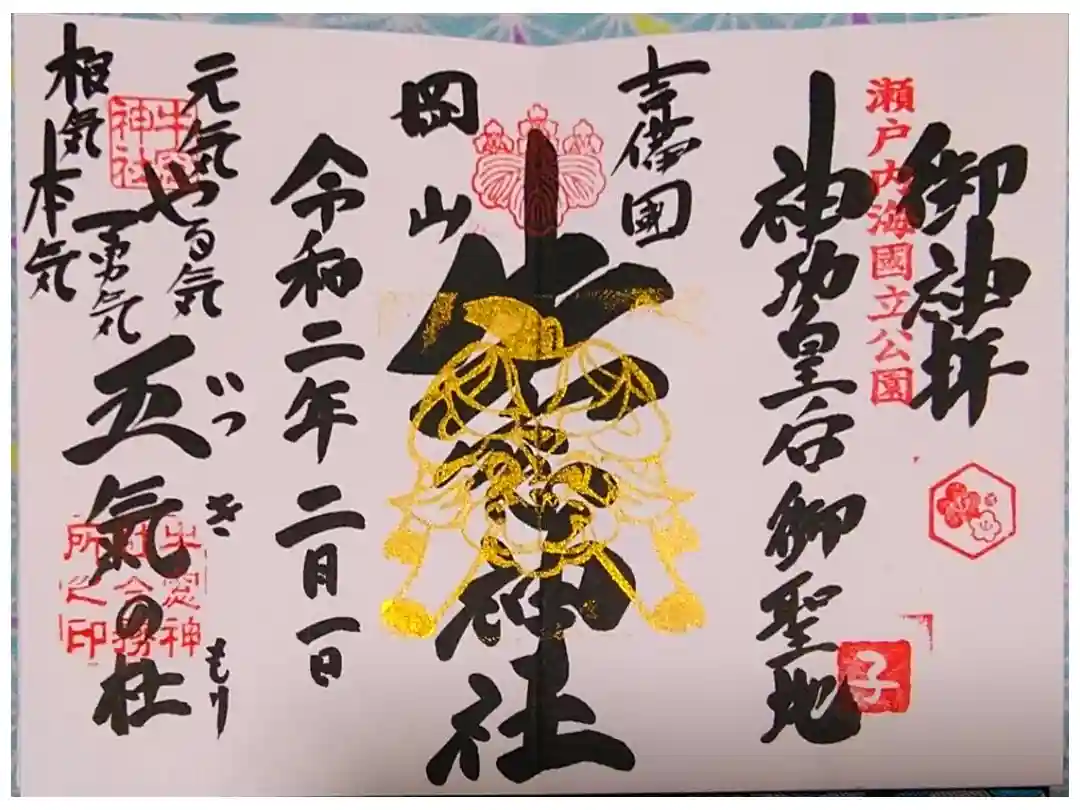 御神拝
瀬戸内海國立公園
神功皇后御聖地
子
吉備国
岡山
牛窓神社
令和二年二月一日
元気
やる気
勇気
根気
本気
五氣の杜
いつきもり
牛窓神社
牛窓神
社今務
所之印